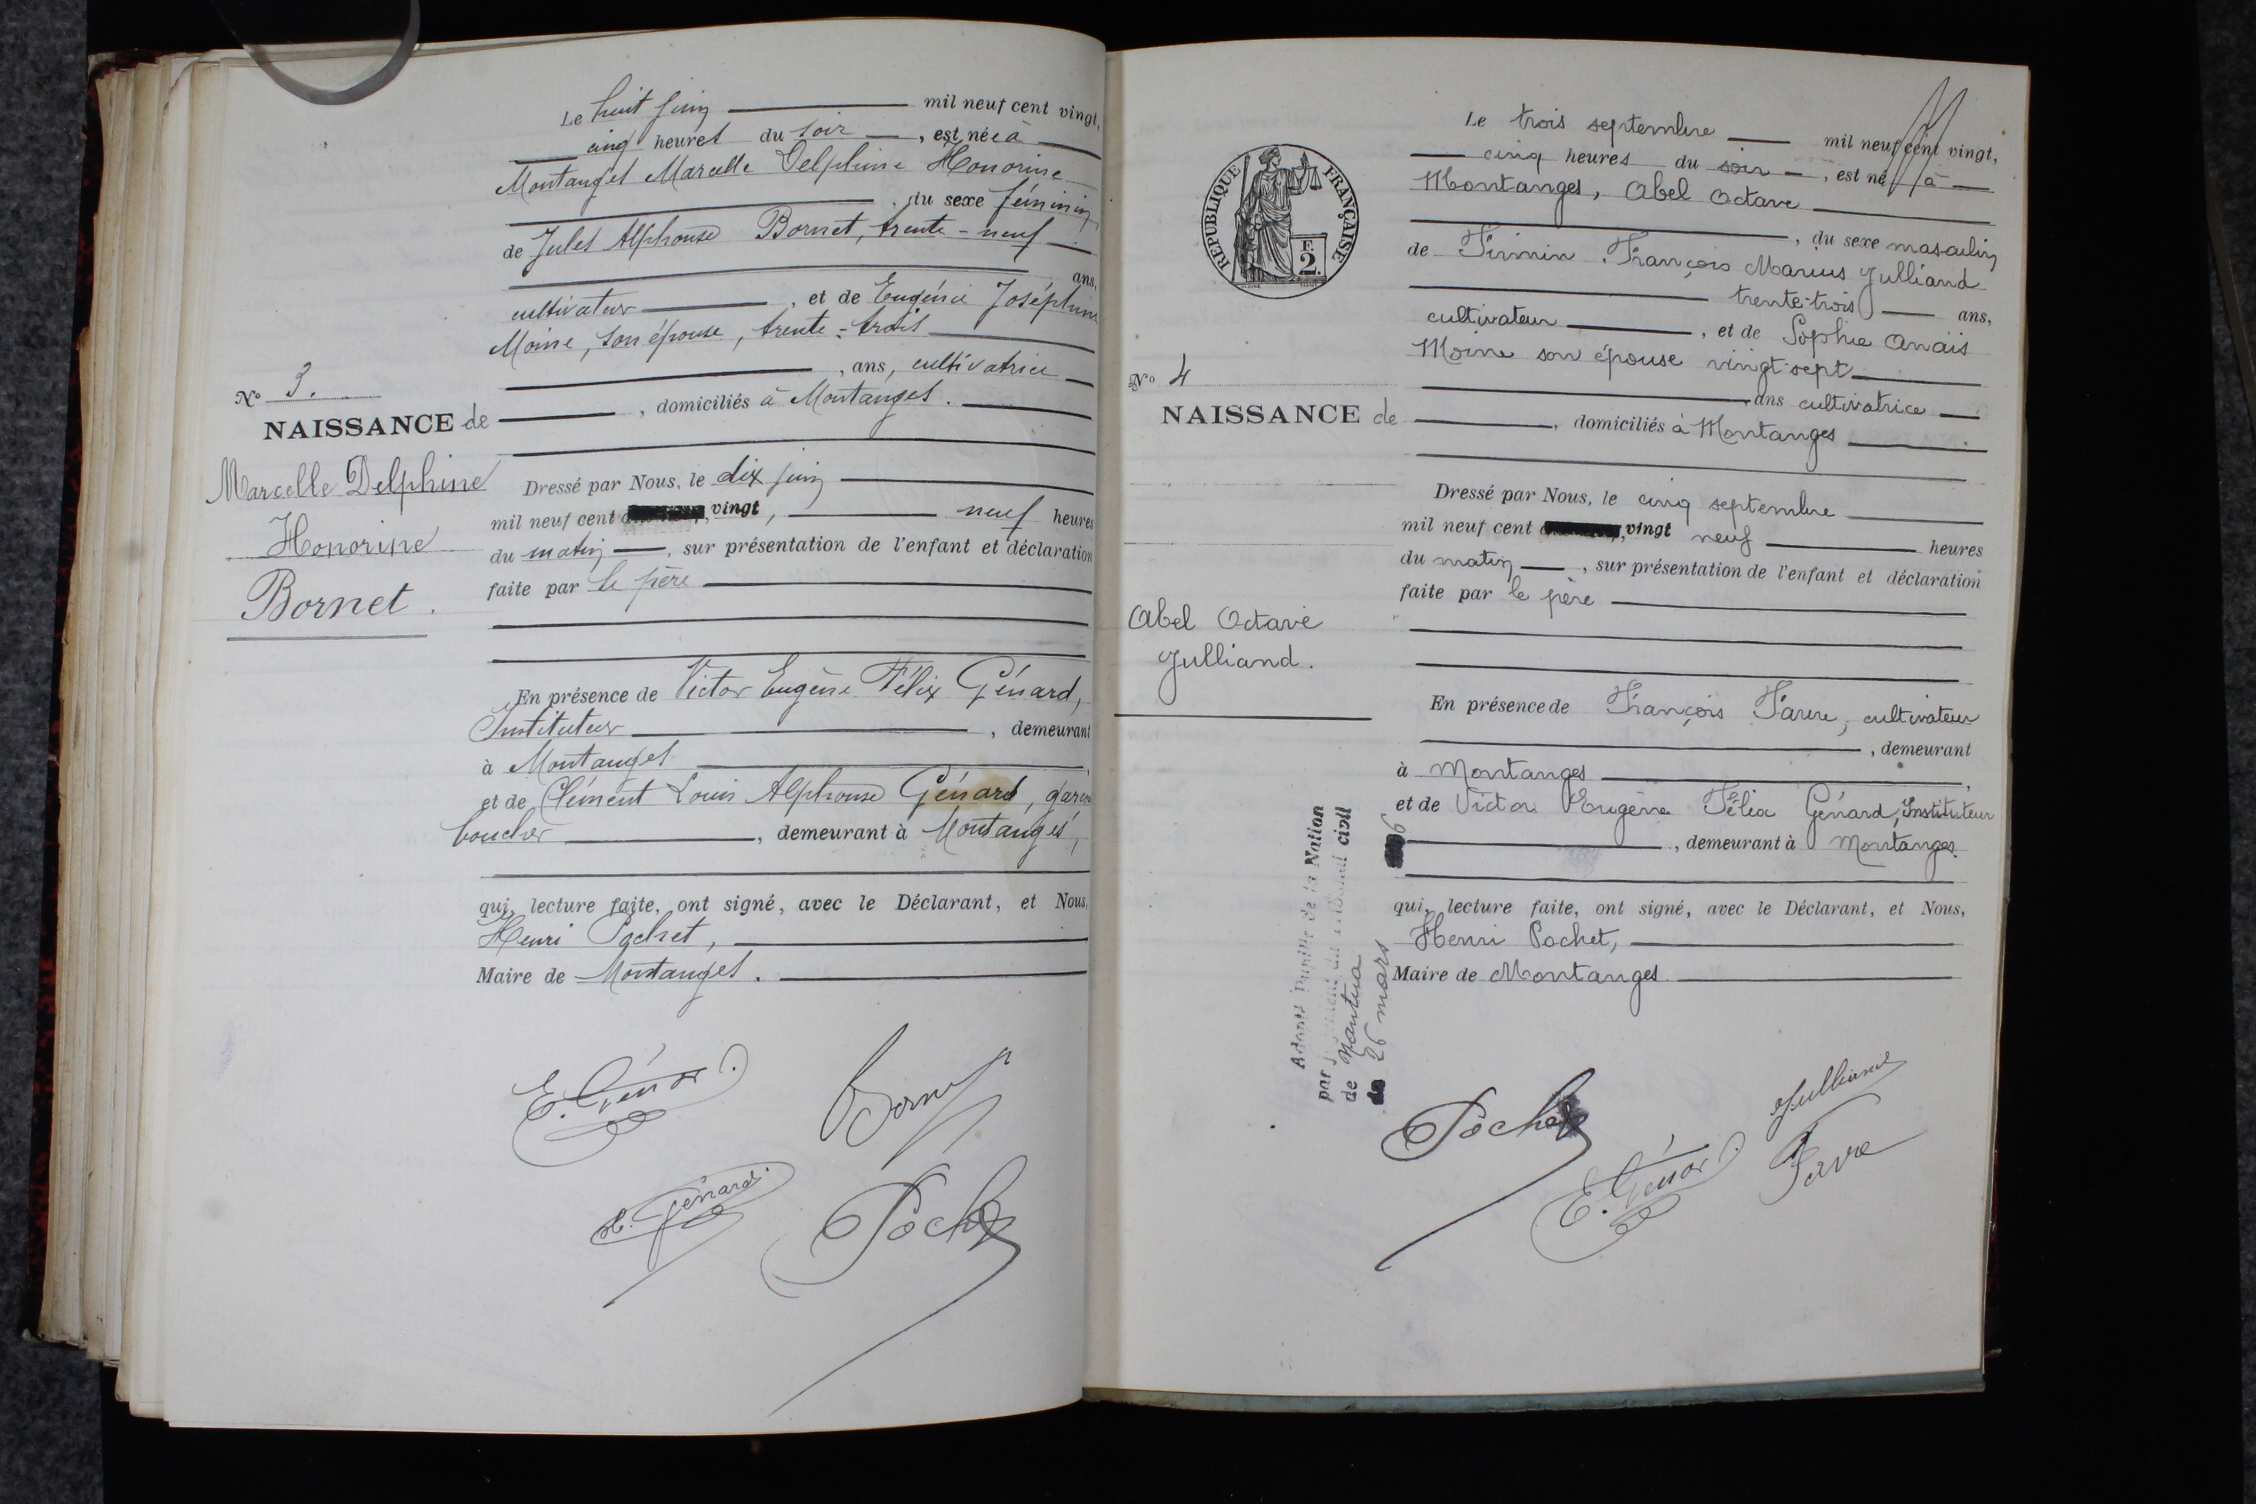 Le huit juin mil neuf cent vingt,
cinq heures du soir, est née à
Montanges Marcelle Delphine Honorine
, du sexe féminin
de Jules Alphonse Bornet, trente-neuf
ans,
cultivateur, et de Eugénie Joséphine
Moine, son épouse, trente-trois
, ans, cultivatrice
, domiciliés à Montanges.
No 3.
NAISSANCE de
Marcelle Delphine
Honorine
Bornet.
Dressé par Nous, le dix juin
mil neuf cent vingt, neuf heures
du matin, sur présentation de l'enfant et déclaration
faite par le père
En présence de Victor Eugène Félix Génard,
Instituteur, demeurant
à Montanges,
et de Clément Louis Alphonse Génard, garçon
boucher, demeurant à Montanges,
qui, lecture faite, ont signé, avec le Déclarant, et Nous,
Henri Pochet,
Maire de Montanges.
E. Génard
Bornet
Génard
Pochet
RÉPUBLIQUE FRANÇAISE
F.
2.
Le trois septembre mil neuf cent vingt,
cinq heures du soir, est né à
Montanges, Abel Octave
, du sexe masculin
de Firmin François Marius Julliand
trente-trois ans,
cultivateur, et de Sophie Anaïs
Moine son épouse vingt-sept
ans cultivatrice
, domiciliés à Montanges
No 4
NAISSANCE de
Abel Octave
Julliand.
Dressé par Nous, le cinq septembre
mil neuf cent vingt neuf heures
du matin, sur présentation de l'enfant et déclaration
faite par le père
En présence de François Favre, cultivateur
, demeurant
à Montanges,
et de Victor Eugène Félix Génard, Instituteur
, demeurant à Montanges.
qui, lecture faite, ont signé, avec le Déclarant, et Nous,
Henri Pochet,
Maire de Montanges
Adopté Pupille de la Nation
par jugement du tribunal civil
de Nantua
26 mars
Pochet
E. Génard
Julliand
Favre